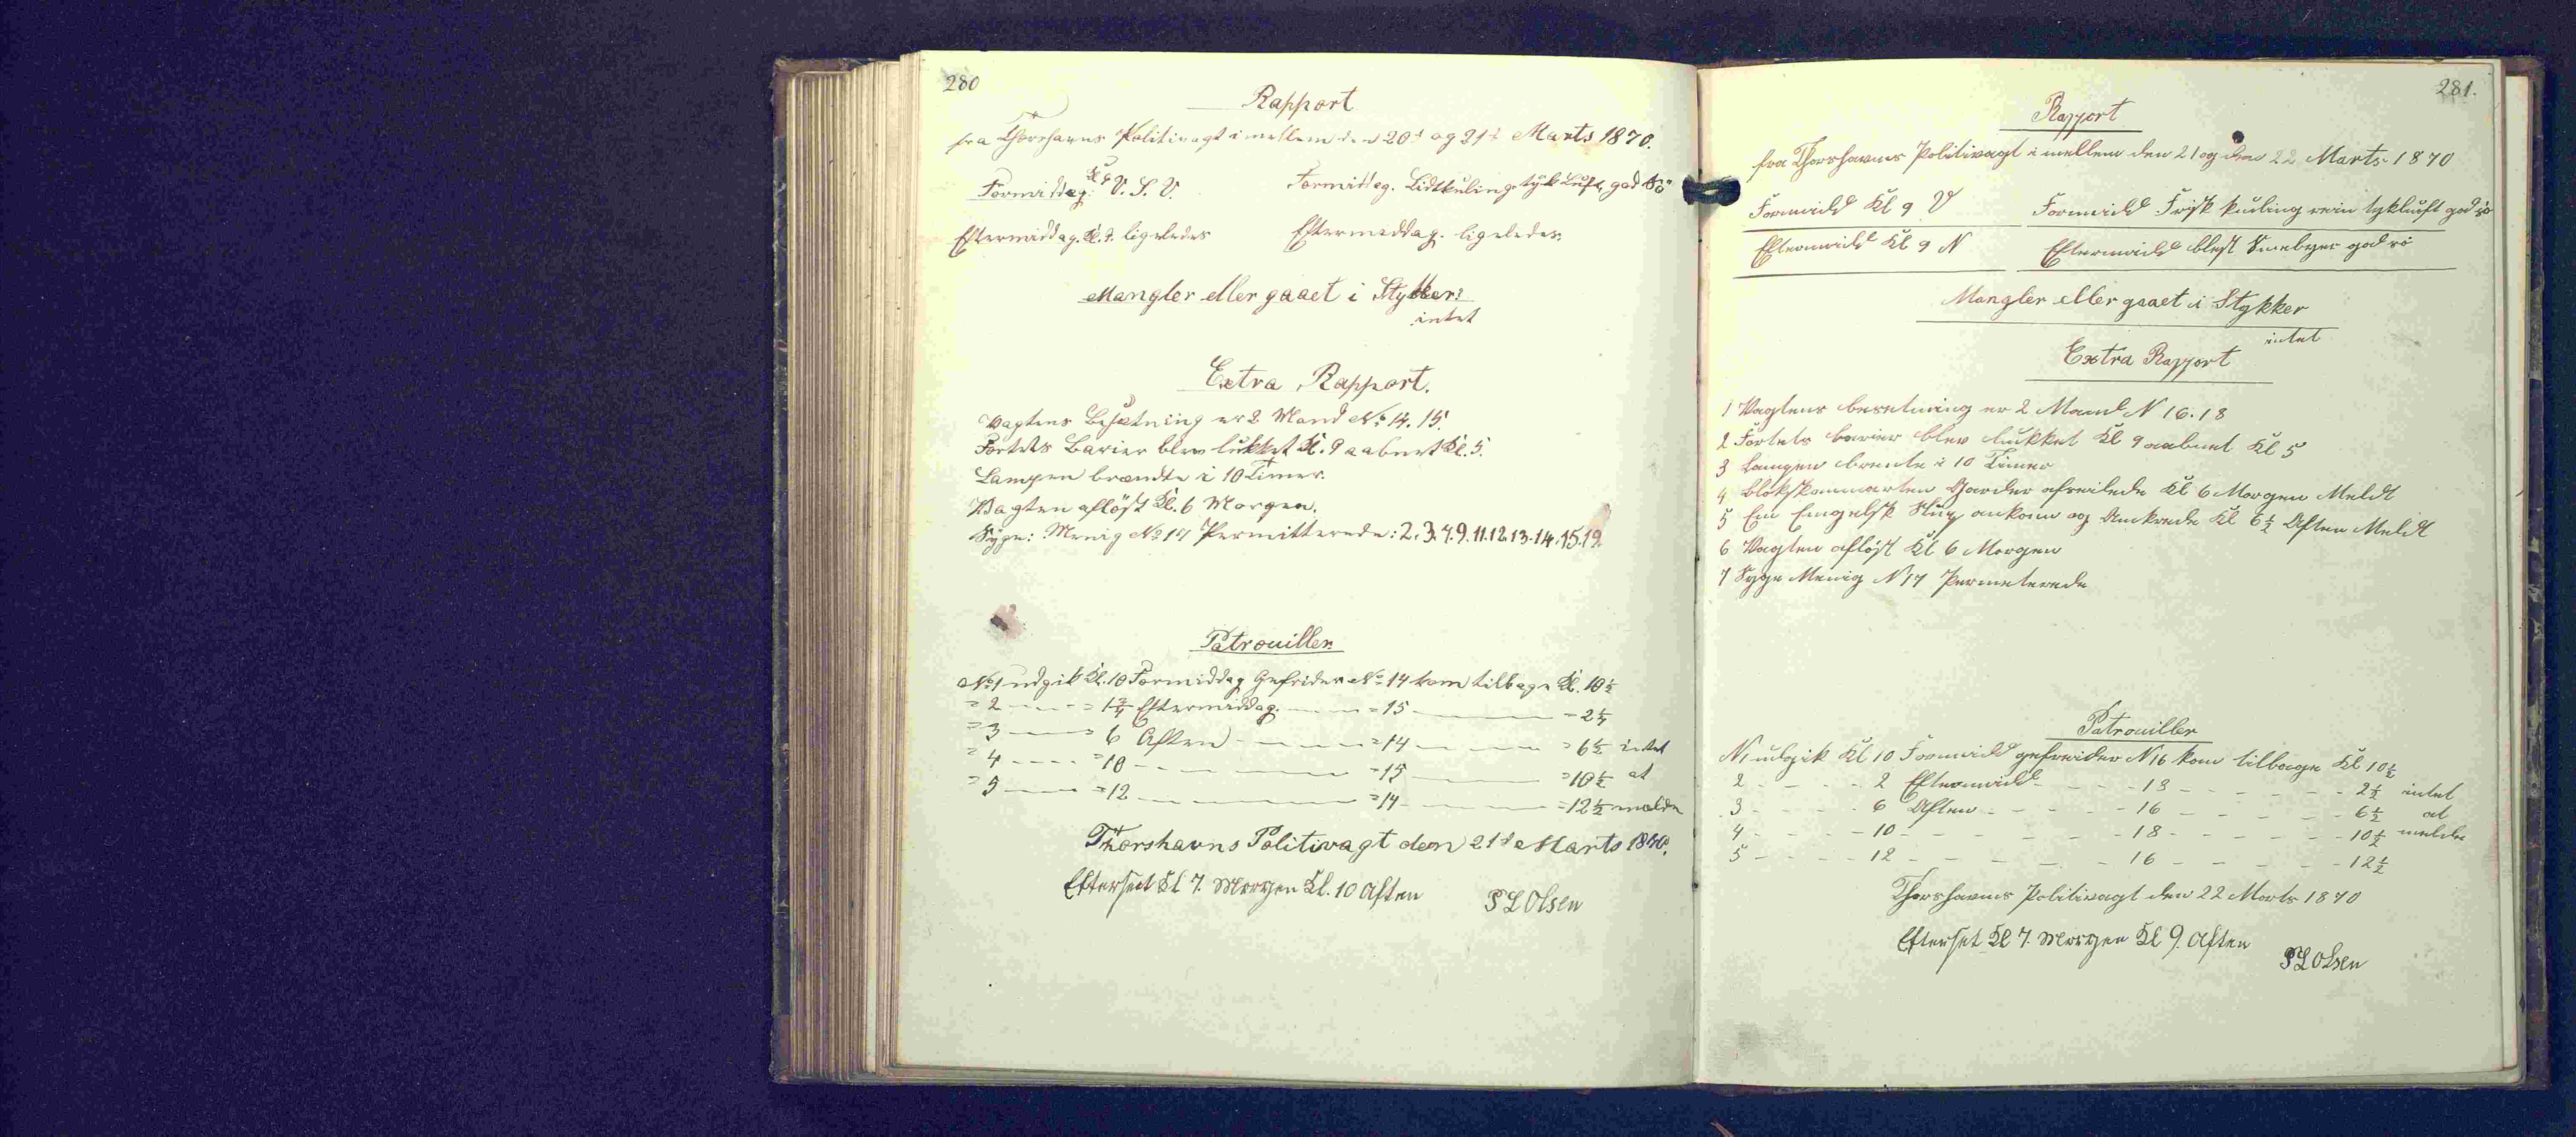 280
Rapport
fra Thorshavns Politivagt imellem den 20de og 21de Marts 1870.
Formiddag. Kl 9 V. S. V. Formiddag. Lidt kuling tyk Luft, god Sö
Eftermiddag. Kl. 9. ligeledes Eftermiddag. ligeledes.
Mangler eller gaaet i Stykker:
intet
Extra Rapport.
Vagtens Besætning er 2 Mand No. 14. 15.
Fortets Barier blev lukket Kl. 9 aabnet Kl. 5.
Lampen brændte i 10 Timer.
Vagten aflöst Kl. 6 Morgen.
Syge: Menig No 17 Permitterede: 2. 3. 7. 9. 11. 12. 13. 14. 15. 19.
Patrouiller
No 1 udgik Kl. 10 Formiddag Gefrider No 14 kom tilbage Kl. 10½
= 2 - - - = 1¾ Eftermiddag. - - - = 15 - - - = 2¼
= 3 - - - = 6 Aften - - - = 14 - - - = 6½ intet
= 4 - - - = 10 - - - = 15 - - - = 10½ at
= 5 - - - = 12 - - - = 14 - - - = 12½ melde
Thorshavns Politivagt den 21de Marts 1870.
Efterseet Kl 7. Morgen Kl. 10 Aften
P L Olsen
281.
Rapport
fra Thorshavns Politivagt imellem den 21 og den 22 Marts 1870
Formidd Kl 9 V Formidd Frisk kuling rein tykluft god sö
Eftermidd Kl 9 N Eftermidd blest Sneebyer god sö
Mangler eller gaaet i Stykker
intet
Extra Rapport
1 Vagtens besetning er 2 Mand N 16. 18
2 Fortets barier blev lukket Kl 9 aabnet Kl 5
3 Lampen brente i 10 Timer
4 Gaarder afseilede Kl 6 Morgen Meldt
5 Ein Engelsk Slup ankom og Ankrede Kl 6½ Aften Meldt
6 Vagten aflöst Kl 6 Morgen
7 Syge Menig N 17 Permeterede
Patrouiller
N 1 udgik Kl 10 Formidd gefreider N 16 kom tilbage Kl 10½
2 - - - 2 Eftermidd - - - 18 - - - 2½ intet
3 - - - 6 Aften - - - 16 - - - 6½ at
4 - - - 10 - - - 18 - - - 10½ melde
5 - - - 12 - - - 16 - - - 12½
Thorshavns Politivagt den 22 Marts 1870
Efterset Kl 7. Morgen Kl 9. Aften
P L Olsen